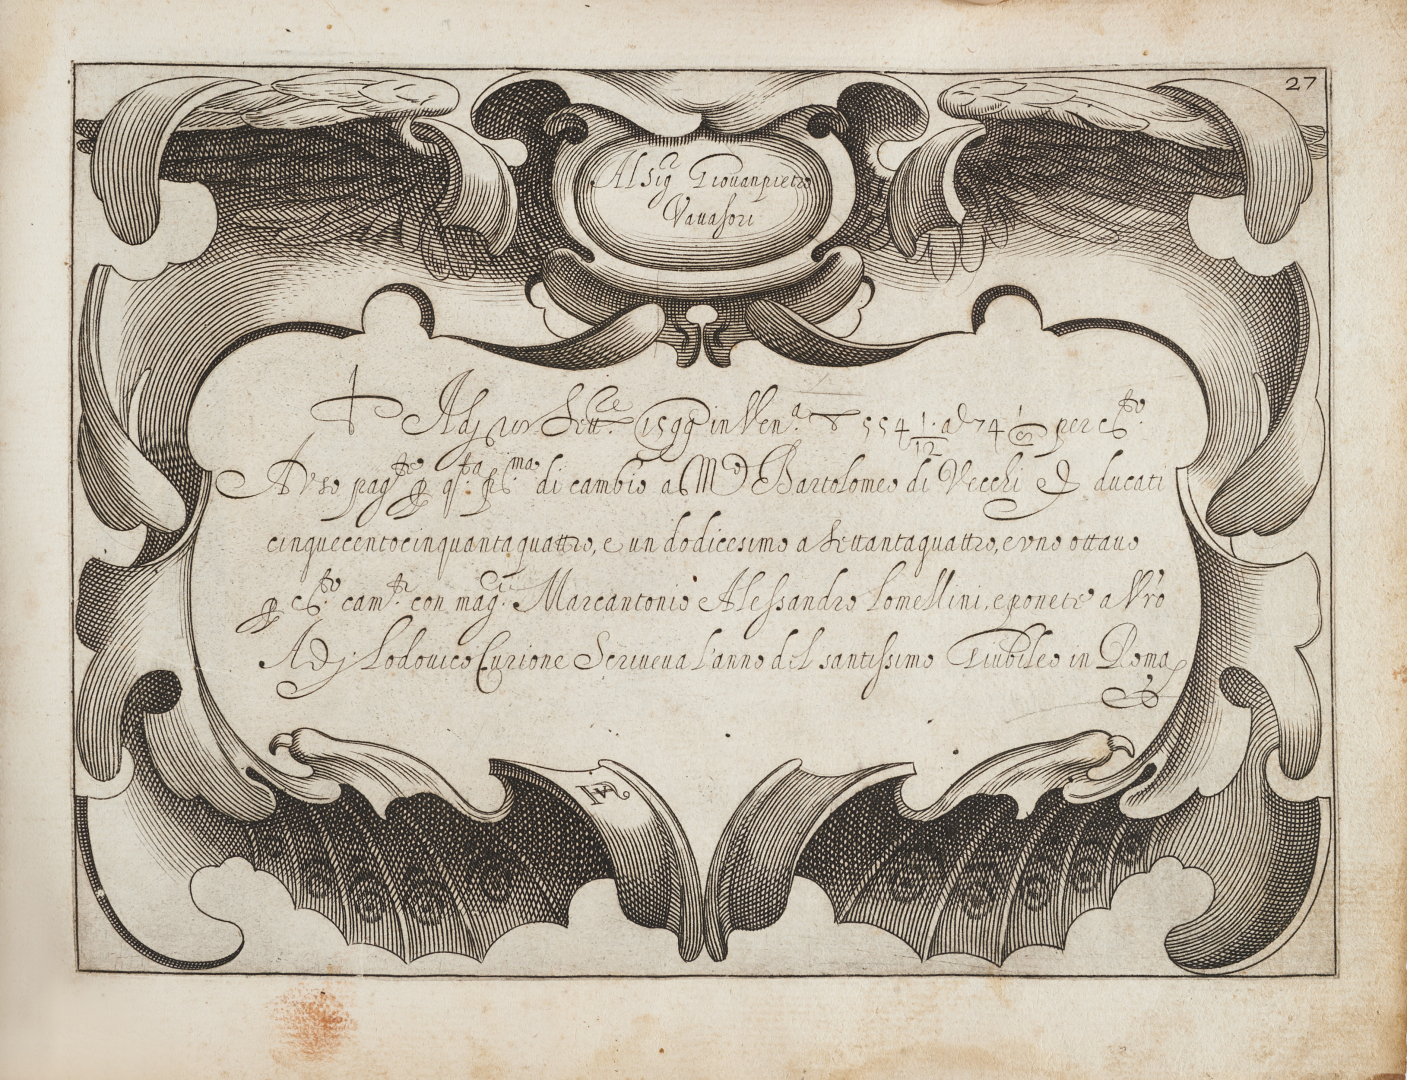 27
Al sig.r Giovanpietro
Vavasori
Adj xv Sett.re 1599 in Ven.a 554 1/12 a d 74 1/8 per c.to
A vso pag.te di cambio a M Bartolomeo di Vecchi ducati
cinquecentocinquantaquattro, e un dodicesimo a settantaquattro, e vno ottauo
con mag.ci Marcantonio Alessandro Lomellini, e ponete a Vro
Adj Lodouico Curione Scriueua l'anno del santissimo Giubileo in Roma